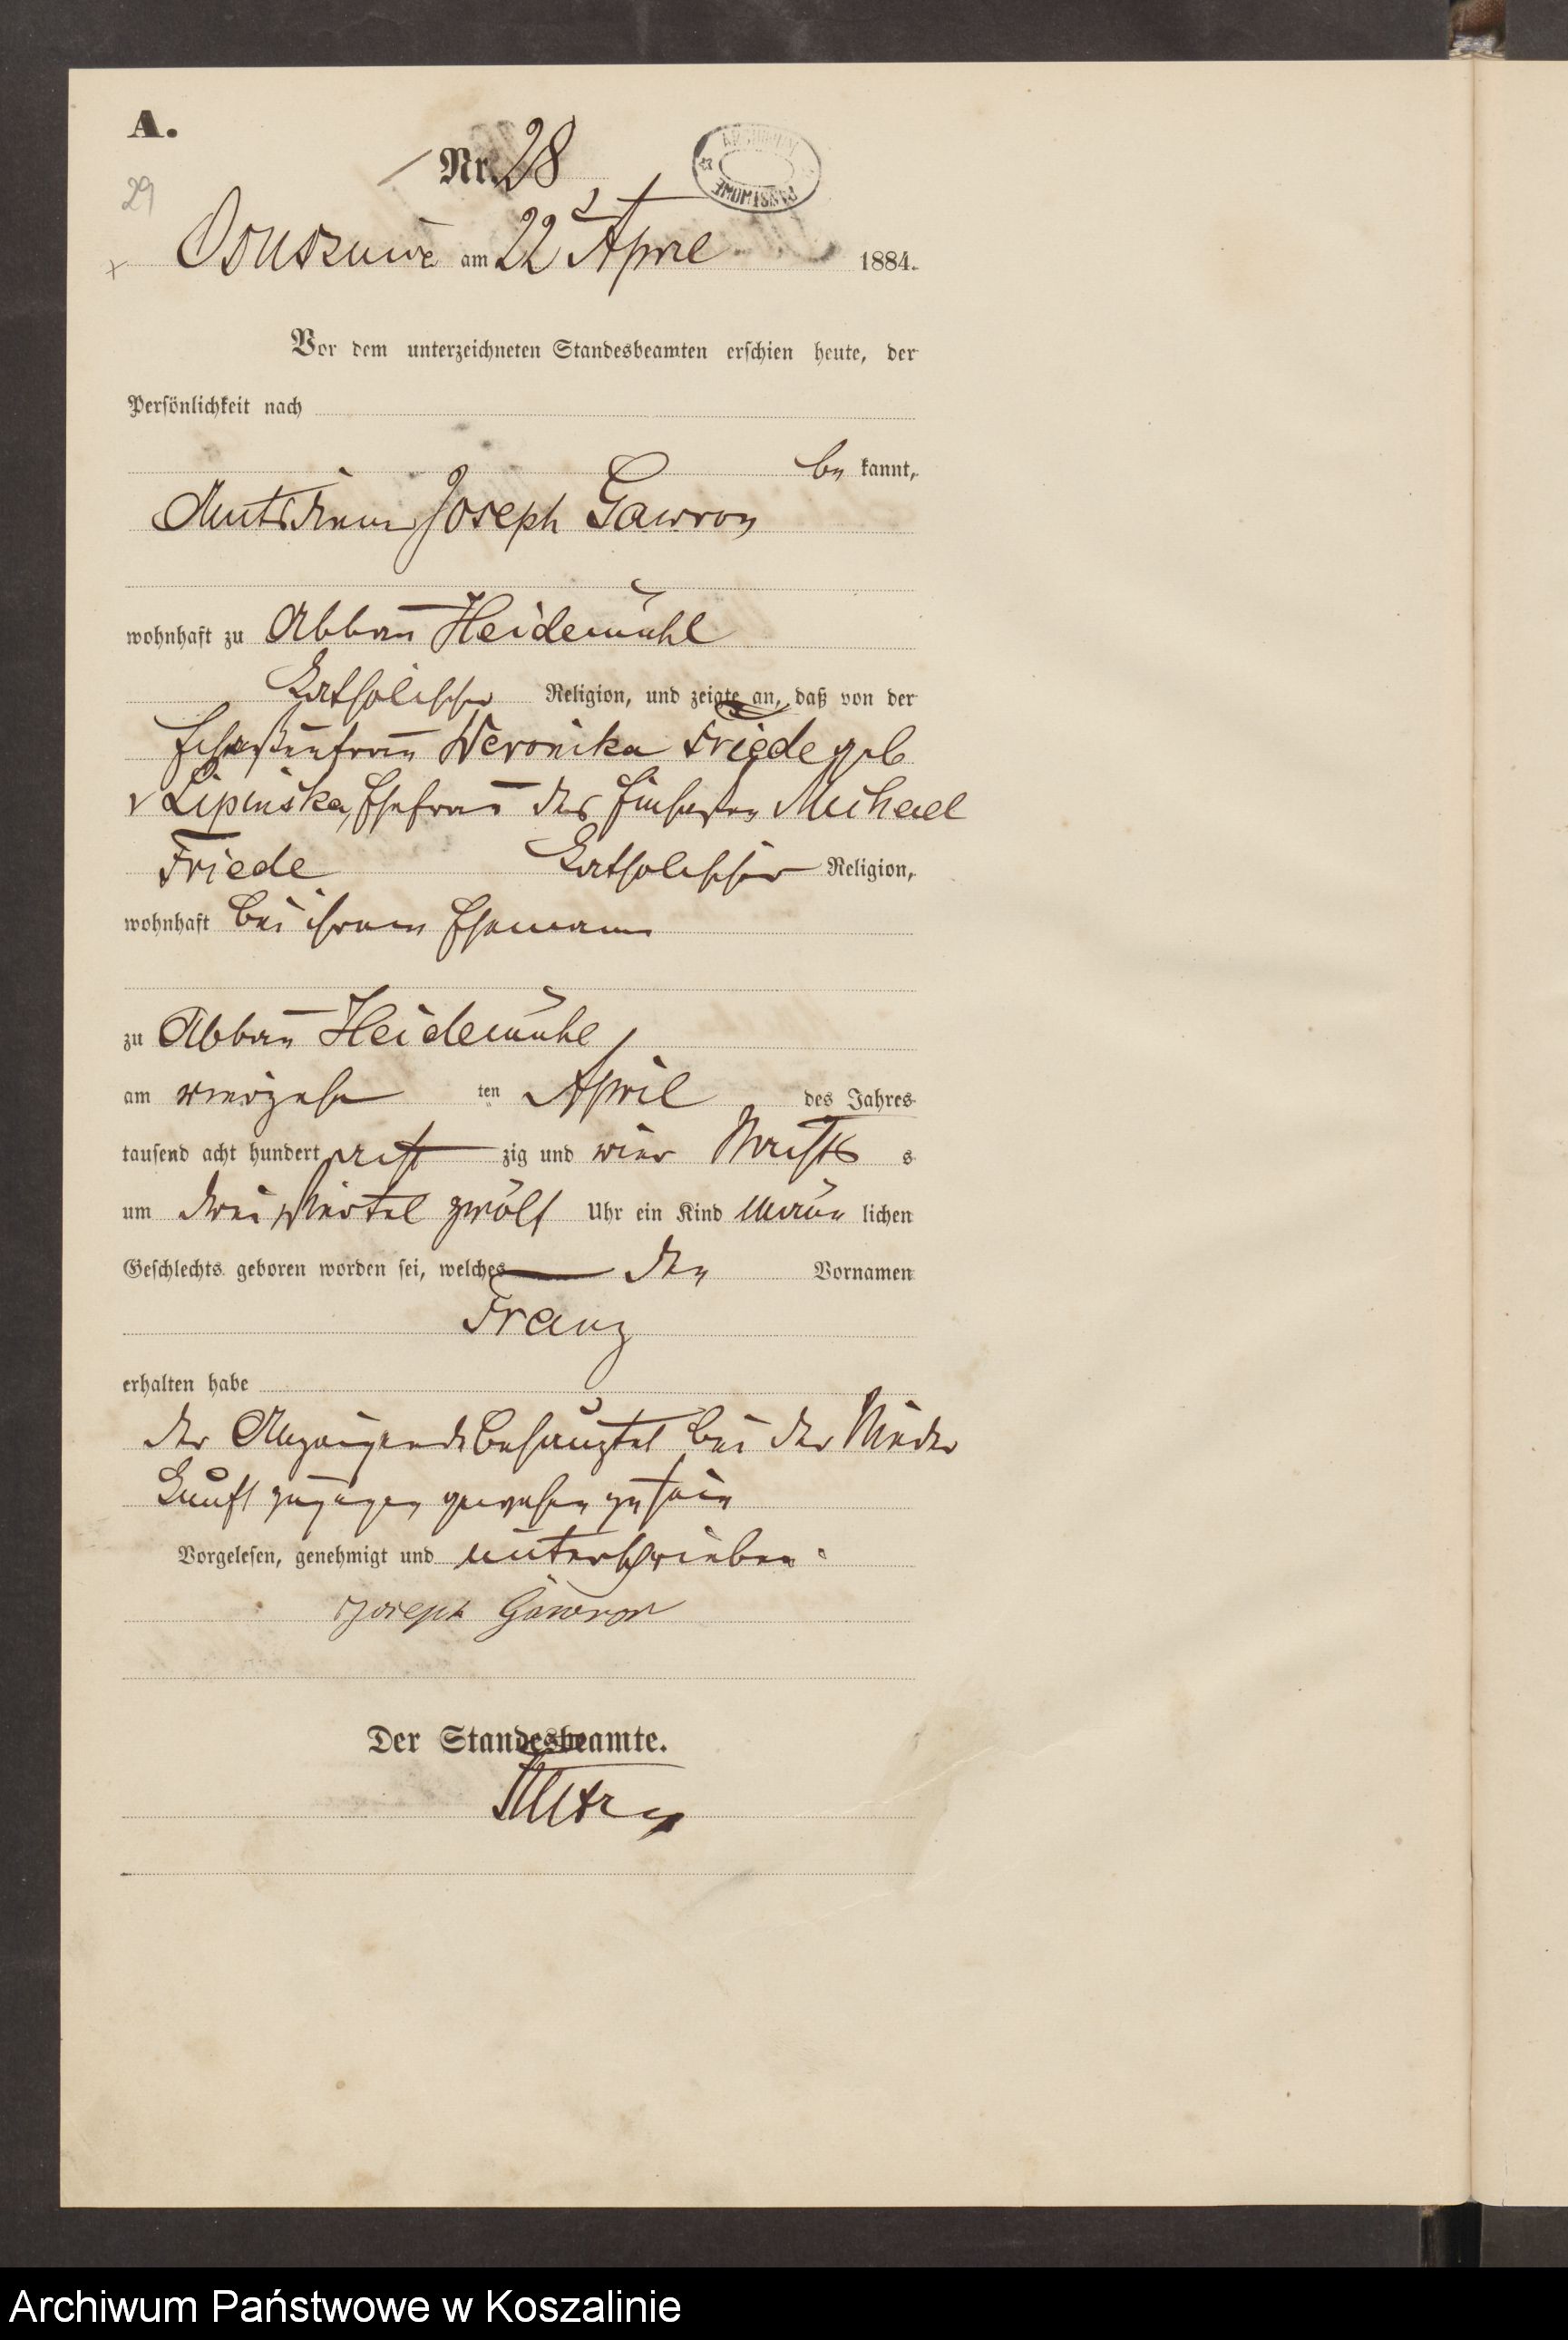 A.
Nr. 28
29
Osuszniča am 22 April 1884.
Vor dem unterzeichneten Standesbeamten erschien heute, der
Persönlichkeit nach
be kannt,
Amtsdiener Joseph Gawron
wohnhaft zu Abbau Heidemühl
Katholischer Religion, und zeigte an, daß von der
Veronika Friede geb
v Lipinska, Ehefrau des Michael
Friede Katholischer Religion,
wohnhaft bei ihrem Ehemann
zu Abbau Heidemühl
am vierzehn ten April des Jahres
tausend acht hundert acht zig und vier Nachts s
um drei Viertel zwölf Uhr ein Kind männ lichen
Geschlechts geboren worden sei, welches den Vornamen
Franz
erhalten habe
der Anzeigende behauptet bei der Nieder
kunft zugegen gewesen zu sein
Vorgelesen, genehmigt und unterschrieben
Joseph Gawron
Der Standesbeamte.
Archiwum Państwowe w Koszalinie